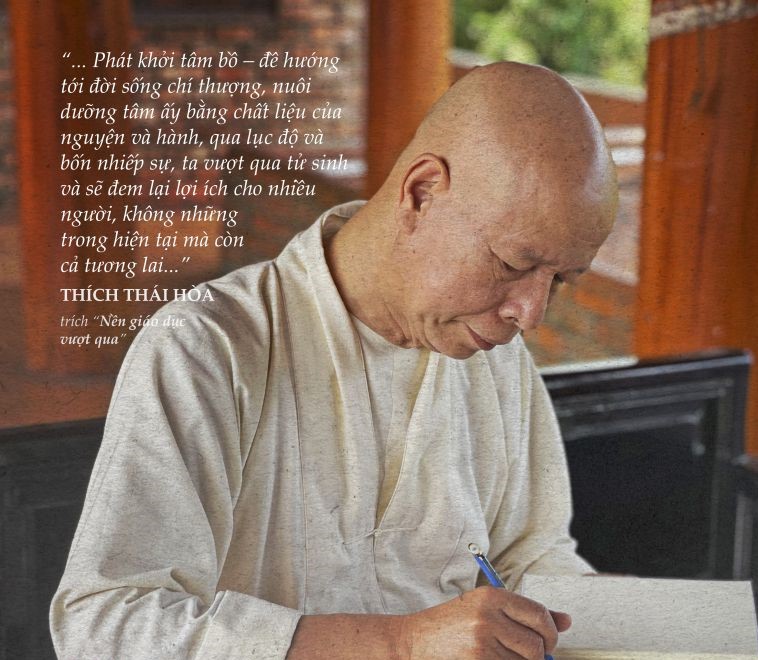 “... Phát khởi tâm bồ – đề hướng
tới đời sống chí thượng, nuôi
dưỡng tâm ấy bằng chất liệu của
nguyện và hành, qua lục độ và
bốn nhiếp sự, ta vượt qua tử sinh
và sẽ đem lại lợi ích cho nhiều
người, không những
trong hiện tại mà còn
cả tương lai...”
THÍCH THÁI HÒA
trích “Nền giáo dục
vượt qua”